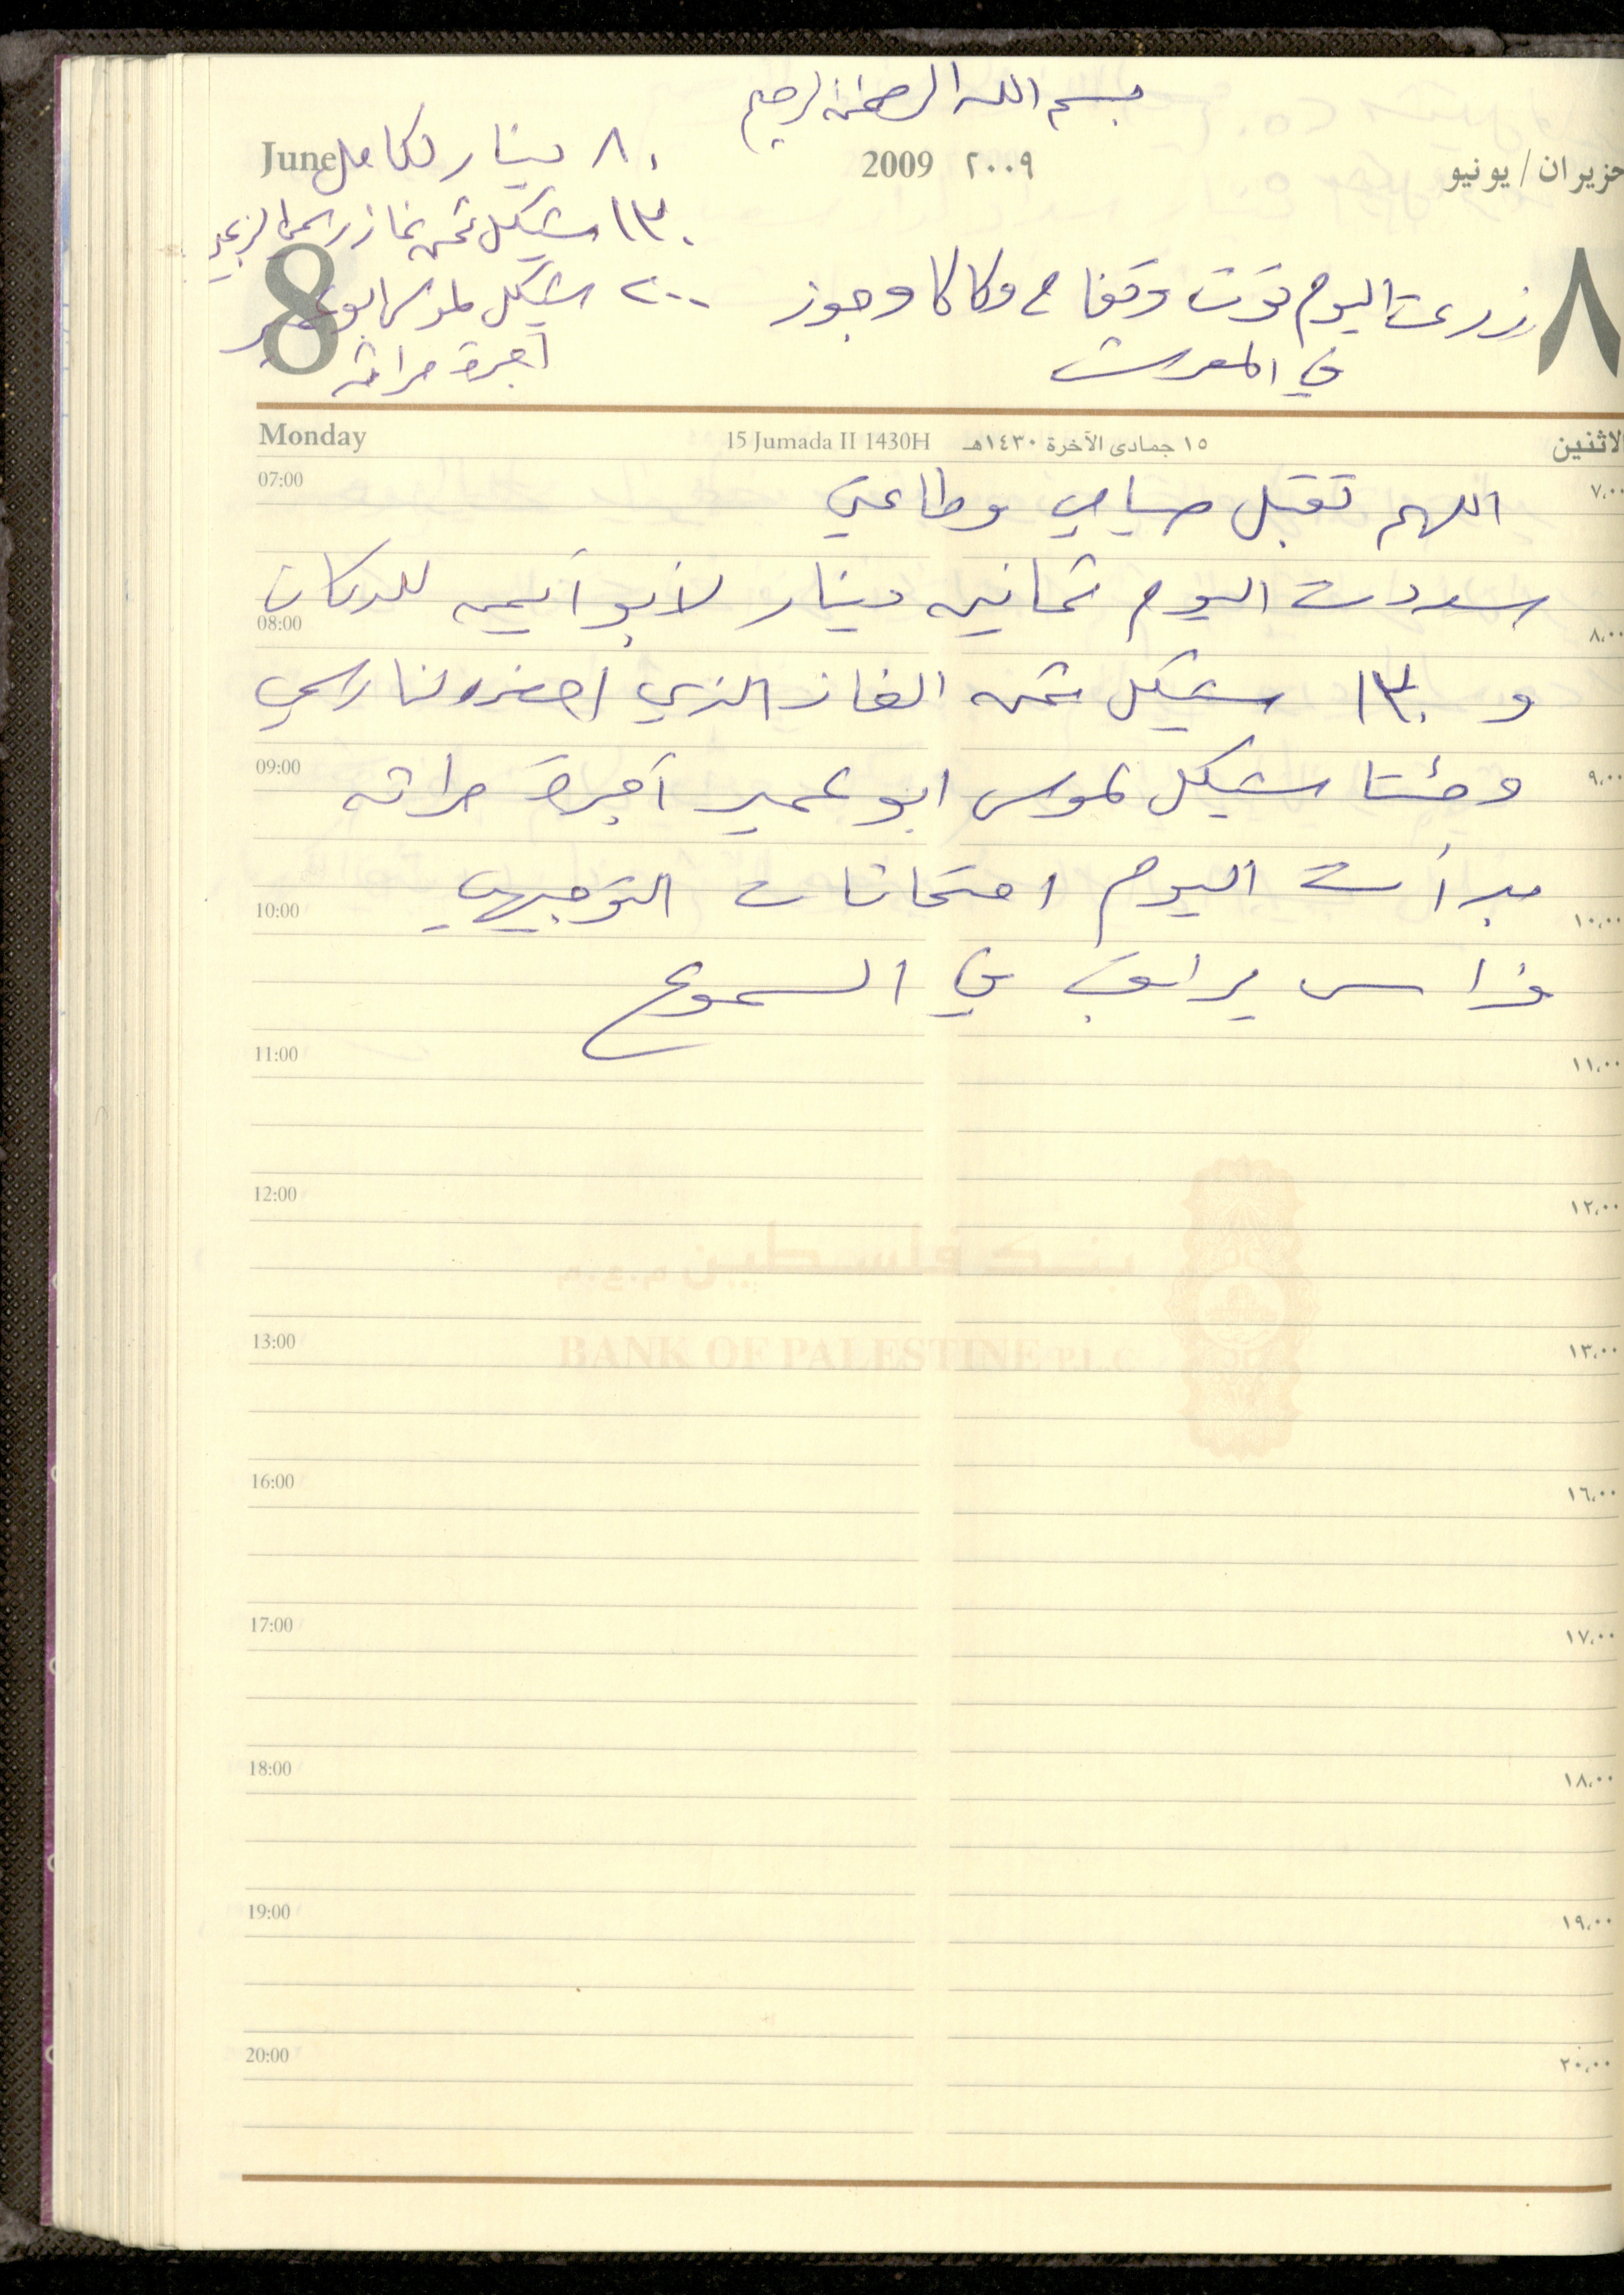 بسم الله الرحمن الرحيم
June
2009 ٢٠٠٩
حزيران / يونيو
٨٠ دينار لكامل
١٣٠ شيكل ثمن غاز رسمي
٢٠٠ شيكل لموسى ابو عمير
أجرة حراثه
8
زرعت اليوم توت وتفاح وكاكا وجوز
في المعرش
٨
Monday
15 Jumada II 1430H ١٥ جمادى الآخرة ١٤٣٠هـ
الاثنين
07:00 ٧,٠٠
اللهم تقبل صيامي وطاعتي
سددت اليوم ثمانين دينار لأبو أيمن للدكان
08:00 ٨,٠٠
و ١٣٠ شيكل ثمن الغاز الذي احضره لنا رسمي
09:00 ٩,٠٠
ومئتا شيكل لموسى ابو عمير أجرة حراثه
بدأت اليوم امتحانات التوجيهي
10:00 ١٠,٠٠
فراس يراقب في السموع
11:00 ١١,٠٠
12:00 ١٢,٠٠
بنك فلسطين م.ع.م
13:00 ١٣,٠٠
BANK OF PALESTINE P.L.C
16:00 ١٦,٠٠
17:00 ١٧,٠٠
18:00 ١٨,٠٠
19:00 ١٩,٠٠
20:00 ٢٠,٠٠